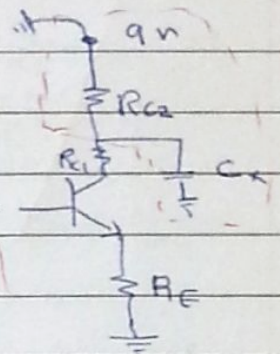 9v
Rc2
Rc1
Cx
RE